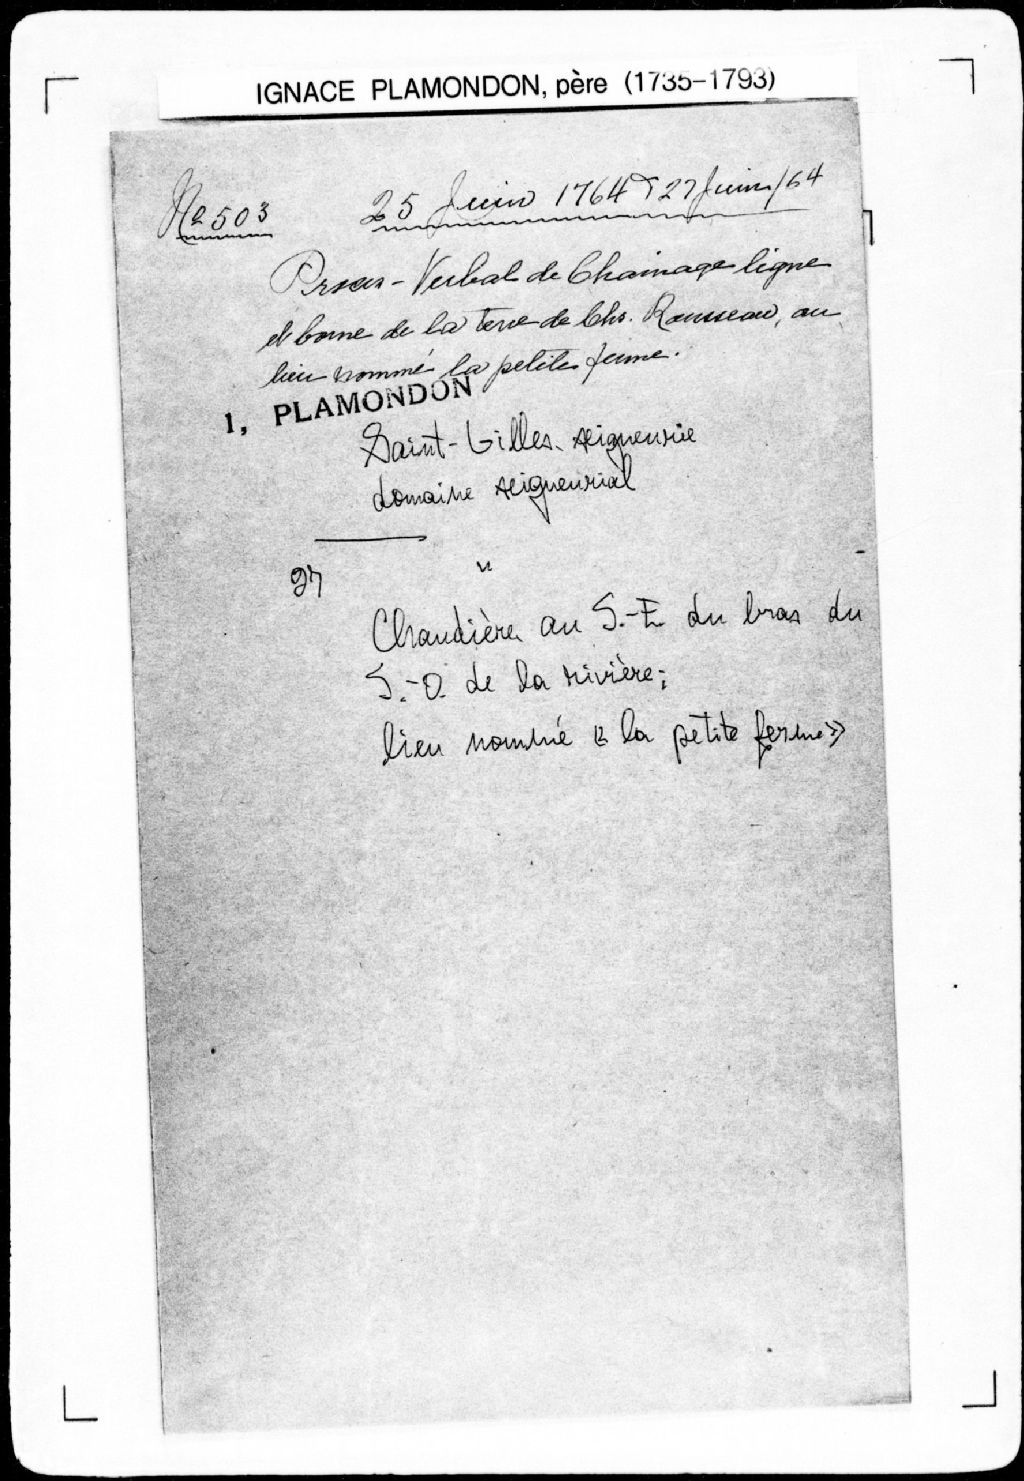 IGNACE PLAMONDON, père (1735-1793)
No 503
25 Juin 1764 & 27 Juin/64
Procès-Verbal de Chainage ligne
et borne de la terre de Chs. Rousseau, au
lieu nommé la petite ferme.
1, PLAMONDON
Saint-Gilles. seigneurie
domaine seigneurial
27 "
Chaudière au S.-E. du bras du
S.-O. de la rivière;
lieu nommé « la petite ferme »